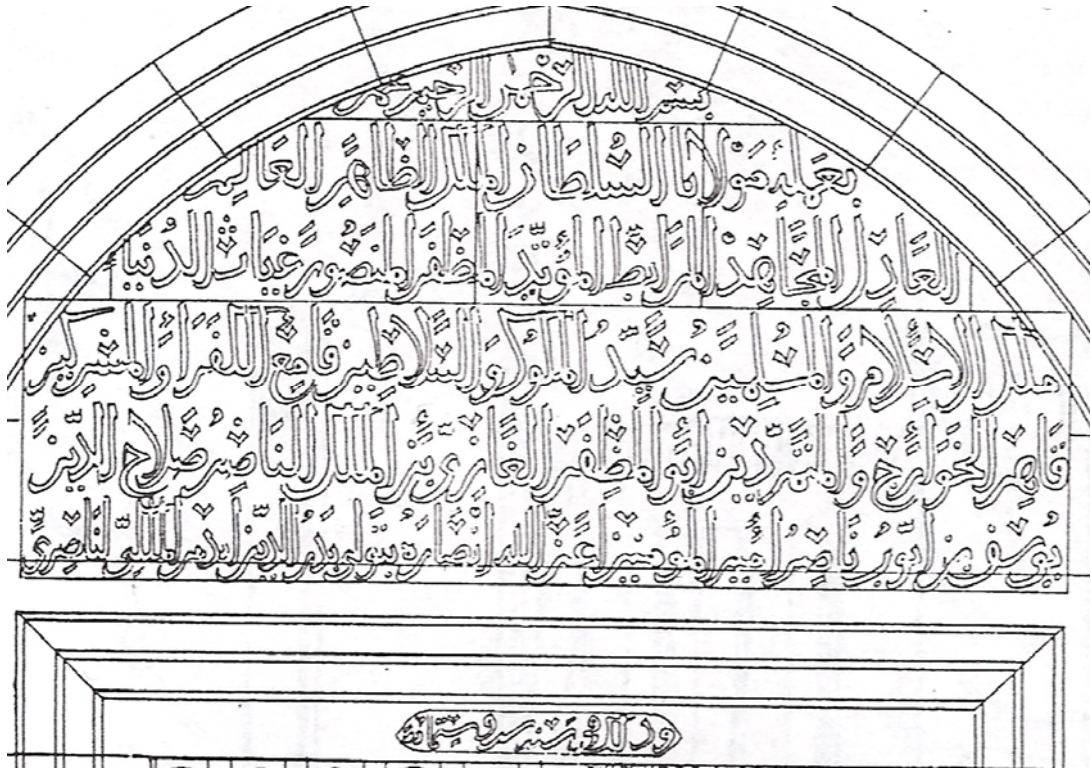 بسم الله الرحمن الرحيم
بعمله مولانا السلطان الملك الظاهر العالم
العادل المجاهد المرابط المؤيد المظفر المنصور غياث الدنيا
ملك الاسلام والمسلمين سيد الملوك والسلاطين قامع الكفرة والمشركين
قاهر الخوارج والمتمردين ابو المظفر الغازي بن الملك الناصر صلاح الدين
يوسف بن ايوب ناصر امير المؤمنين اعز الله انصاره بتولي بدر الدين ايدمر الملكي الناصري
وذلك في سنة ست وستمائة